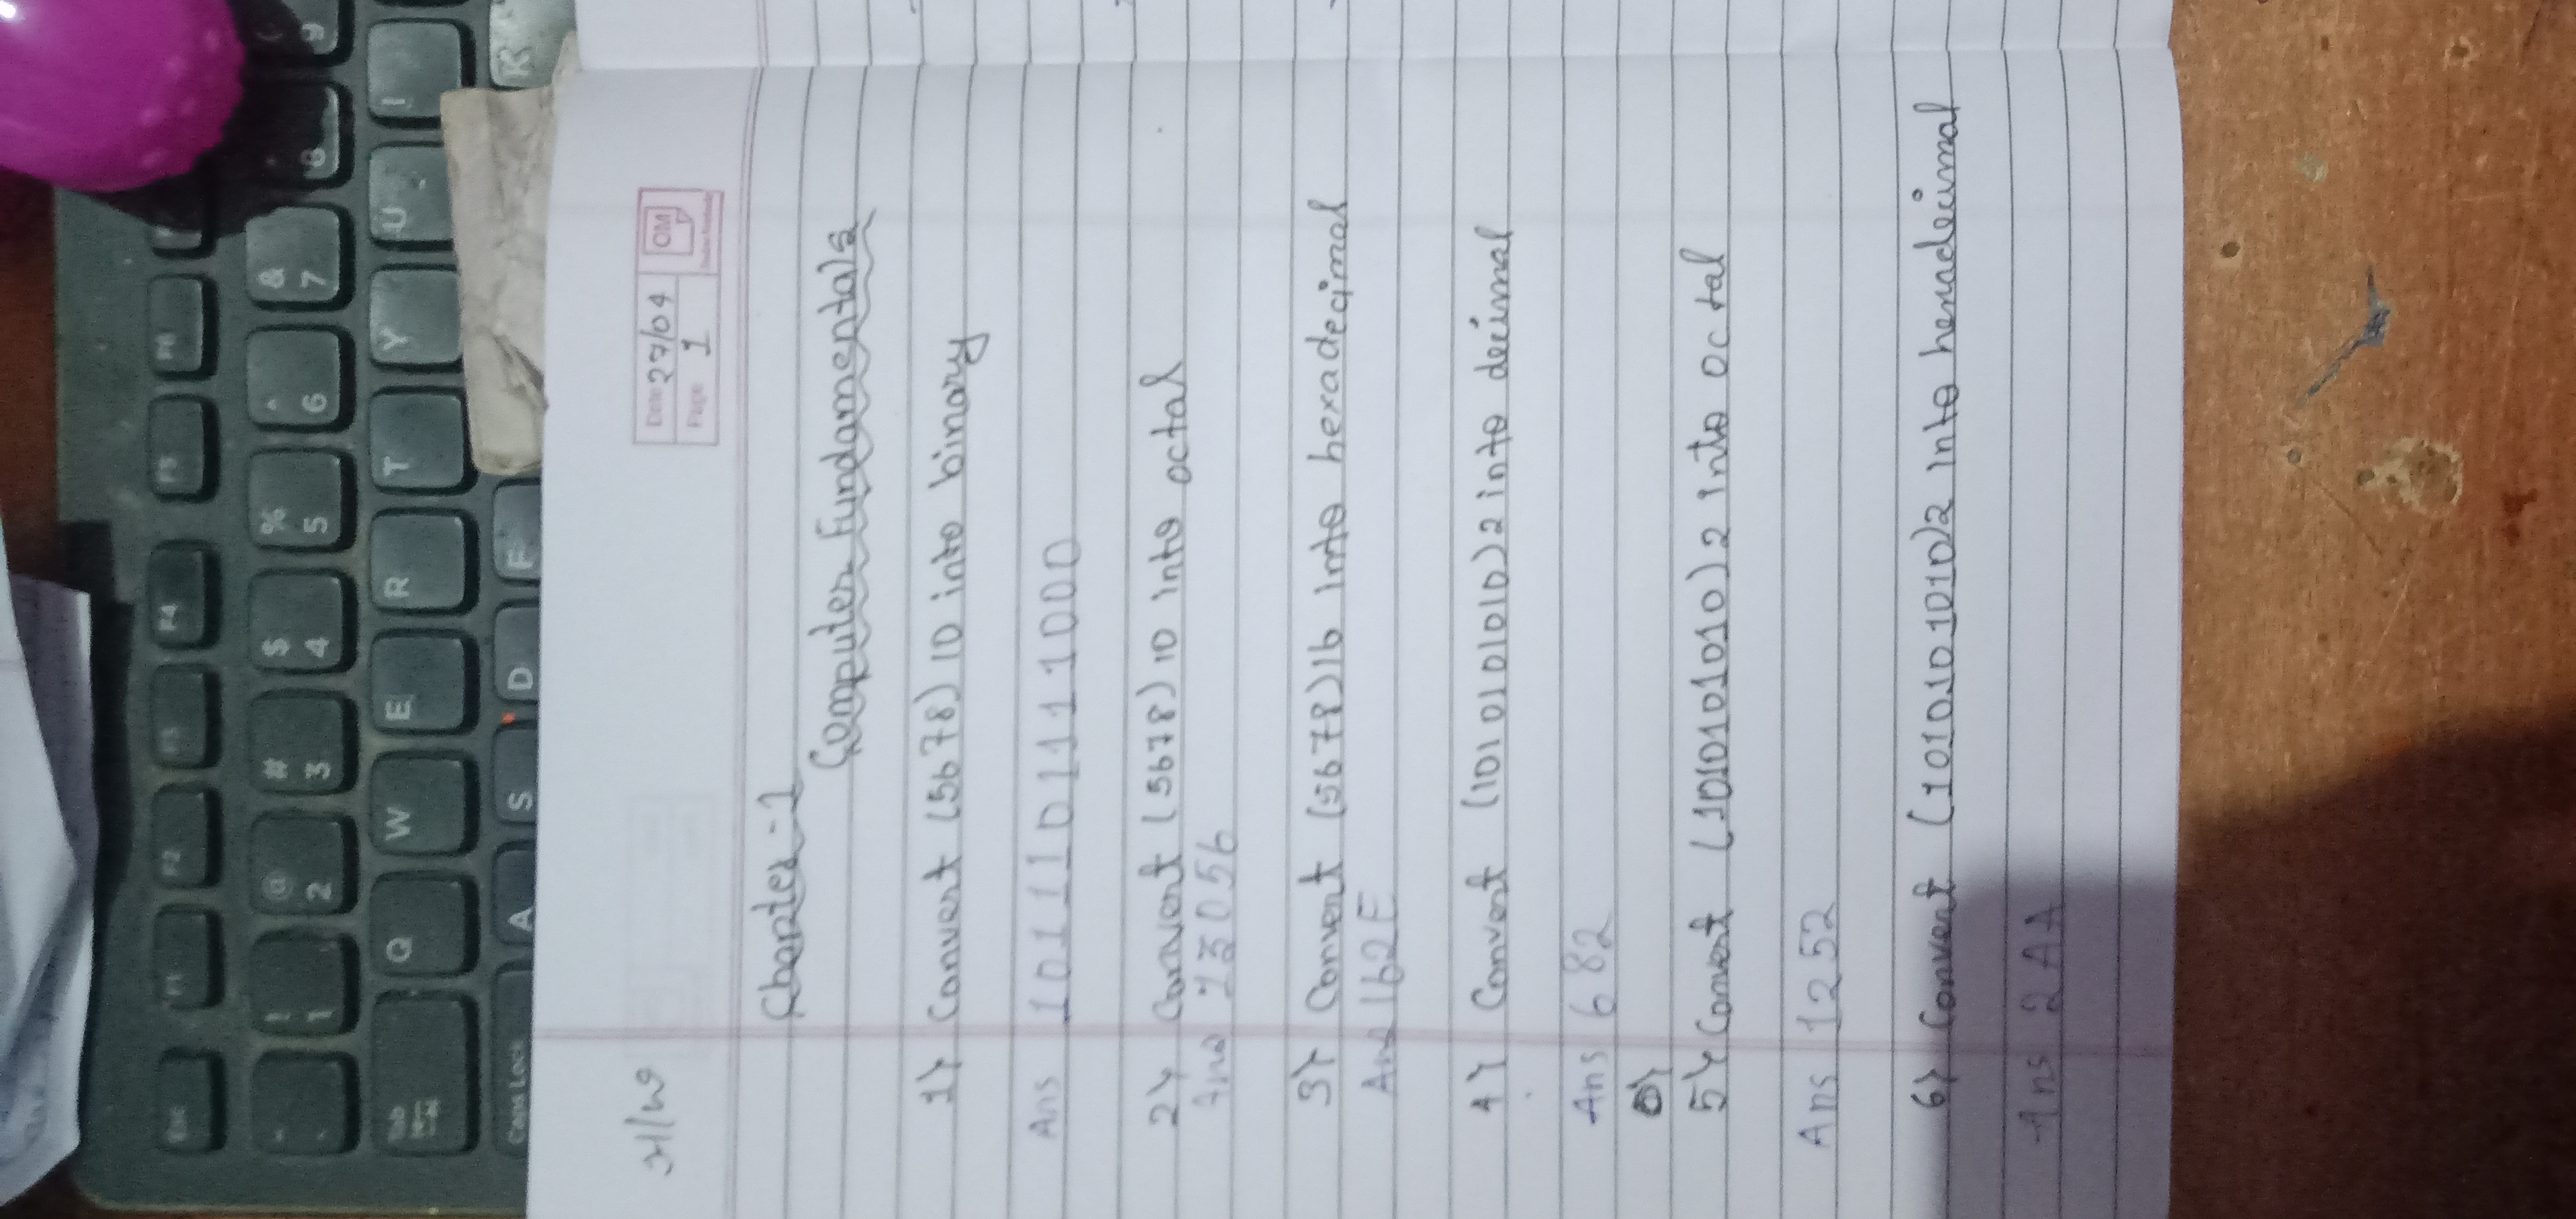 H/W
Date 27/04
Page 1
OM
Chapter-1
Computer Fundamentals
1) Convert (5678)10 into binary
Ans 1011101111000
2) Convert (5678)10 into octal
Ans 13056
3) Convert (5678)16 into hexadecimal
Ans 162E
4) Convert (1010101010)2 into decimal
Ans 682
5) Convert (1010101010)2 into octal
Ans 1252
6) Convert (1010101010)2 into henadecimal
Ans 2AA
Esc F1 F2 F3 F4 F5 F6
! 1 @ 2 # 3 $ 4 % 5 ^ 6 & 7 8 9
Tab Q W E R T Y U I
Caps Lock A S D F K